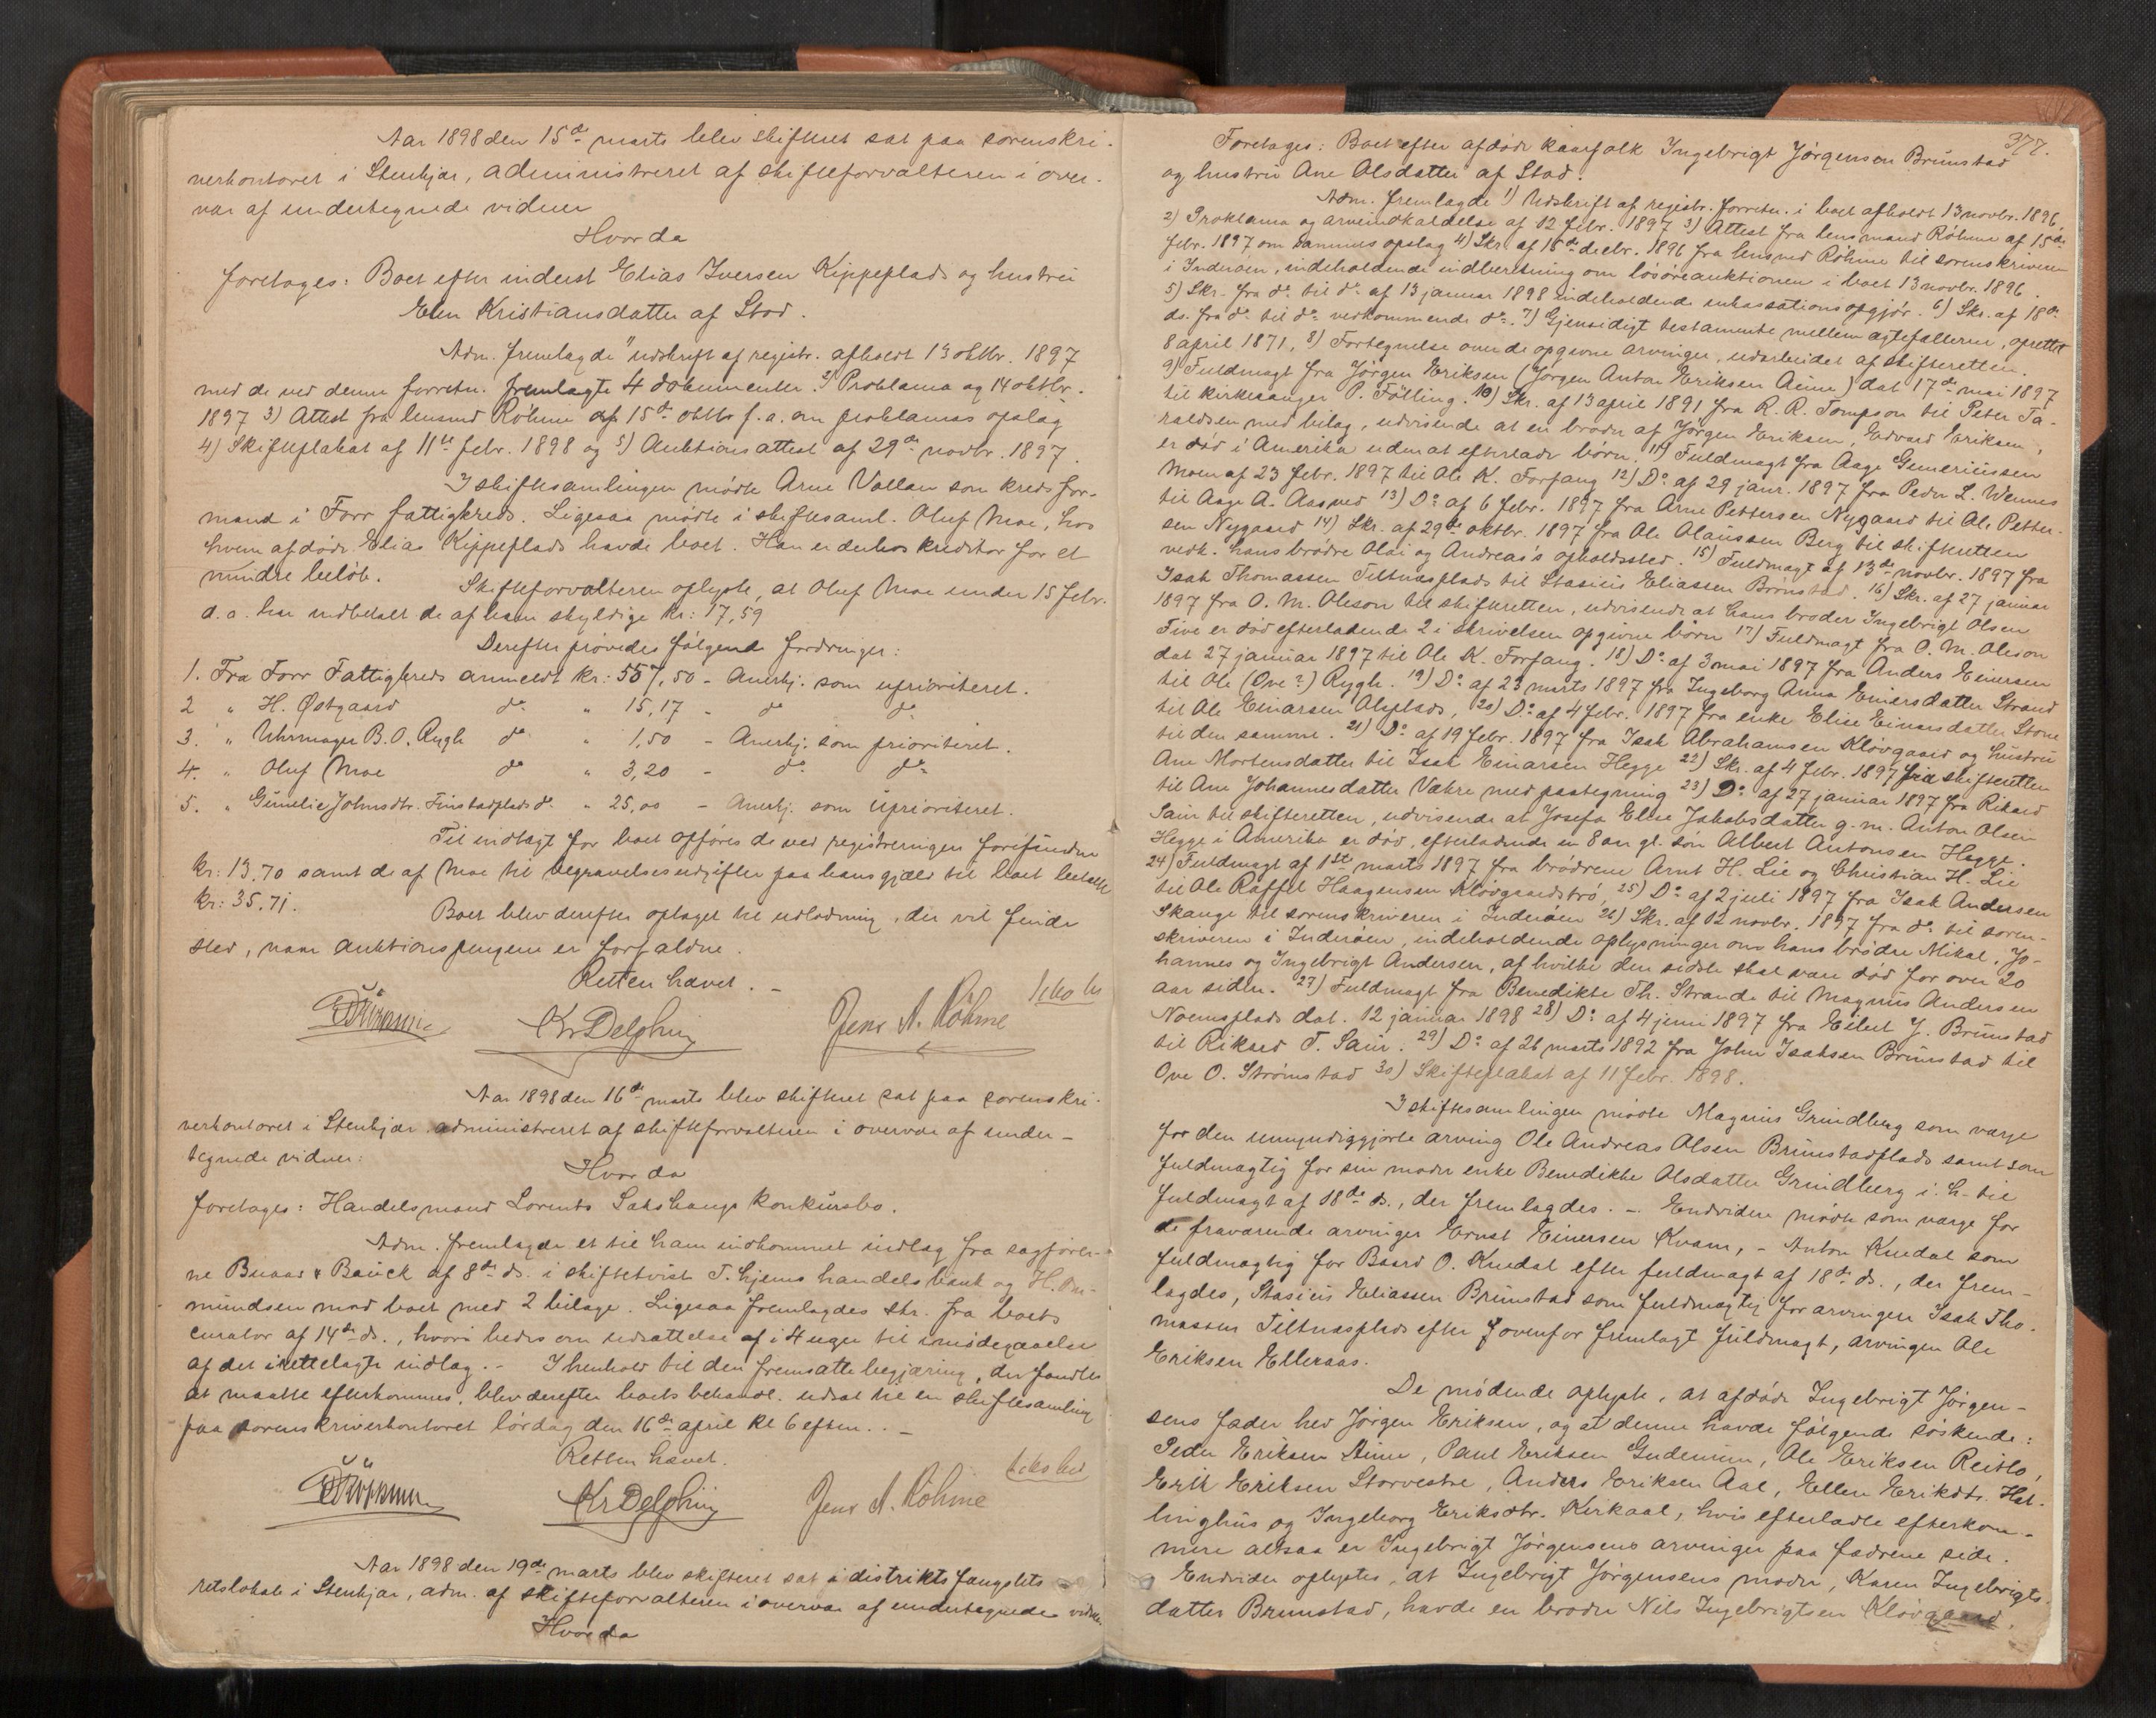 Aar 1898 den 15de marts blev skifteret sat paa sorenskri-
verkontoret i Stenkjær, administreret af skifteforvalteren i over-
vær af undertegnede vidner
Hvorda
foretages: Boet efter inderst Elias Iversen Kippeplads og hustru
Elen Kristiansdatter af Stod.
Adm. fremlagde 1) udskrift af registr. afholdt 13 oktbr. 1897
med de ved denne forretn. fremlagte 4 dokumenter. 2) Proklama og 14 oktbr.
1897 3) Attest fra lensmd Röhme af 15de oktbr f. a. om proklamas opslag
4) Skifteplakat af 11te febr. 1898 og 5) Auktionsattest af 29de novbr. 1897.
I skiftesamlingen mødte Arne Vollan som kredsfor-
mand i For fattigkreds. Ligesaa mødte i skiftesaml. Oluf Moe, hos
hvem afdøde Elias Kippeplads havde boet. Han er derhos kreditor for et
mindre beløb.
Skifteforvalteren oplyste, at Oluf Moe under 15 febr.
d. a. har indbetalt de af ham skyldige kr: 17,59
Derefter prøvedes følgende fordringer:
1. Fra Forr Fattigkreds anmeldt kr: 557,50 - Anerkj. som uprioriteret.
2 " H. Østgaard do " 15,17 - do do
3. " Uhrmager B. O. Rygh do " 1,50 - Anerkj. som prioriteret.
4. " Oluf Moe do " 3,20 - do do
5. " Gunelie Johnsdtr. Finstadplads do. " 25,00 - Anerkj. som uprioriteret.
Til indtægt for boet opføres de ved registreringen forefundne
kr: 13.70 samt de af Moe til begravelsesudgifter paa hans gjæld til boet betalte
kr: 35.71.
Boet blev derefter optaget til udlodning, der vil finde
sted, naar auktionspengene er forfaldne.
Retten hævet. -
Kr Delphin Jens A. Röhme
Aar 1898 den 16de marts blev skifteret sat paa sorenskri-
verkontoret i Stenkjær administreret af skifteforvalteren i overvær af under-
tegnede vidner:
Hvorda
foretages: Handelsmand Lorents Sakshaugs konkursbo.
Adm. fremlagde et til ham indkommet indlæg fra sagfører-
ne Buaas & Bauck af 8de ds. i skiftetvist T. hjems handelsbank og H. Om-
mundsen mod boet med 2 bilage. Ligesaa fremlagdes skr. fra boets
curator af 14de ds., hvori bedes om udsættelse af i 4 uger til imødegaaelse
af det irettelagte indlæg. - I henhold til den fremsatte begjæring, der fandtes
at maatte efterkommes, blev derefter boets behandl. udsat til en skiftesamling
paa sorenskriverkontoret lørdag den 16de april kl 6 eftm.. -
Retten hævet.
Kr Delphin Jens A. Röhme
Aar 1898 den 19de marts blev skifteret sat i distriktsfængslets
retslokale i Stenkjær, adm. af skifteforvalteren i overvær af undertegnede vidner
Hvorda
377.
Foretages: Boet efter afdøde kaarfolk Ingebrigt Jørgensen Brunstad
og hustru Ane Olsdatter af Stod.
Adm. fremlagde 1) Udskrift af registr. forretn. i boet afholdt 13 novbr. 1896,
2) Proklama og arveindkaldelse af 12 febr. 1897 3) Attest fra lensmand Röhme af 15de
febr. 1897 om sammes opslag 4) Skr. af 15de decbr. 1896 fra lensmd Röhme til sorenskriveren
i Inderøen, indeholdende indberetning om løsøreauktionen i boet 13 novbr. 1896.
5) Skr. fra do til do af 13 januar 1898 indeholdende inkassationsopgjør. 6) Skr. af 18de
ds. fra do til do vedkommende do. 7) Gjensidigt testamente mellem ægtefællerne, oprettet
8 april 1871, 8) Fortegnelse over de opgivne arvinger, udarbeidet af skifteretten.
9) Fuldmagt fra Jørgen Eriksen (Jørgen Anton Eriksen Aune) dat 17de mai 1897
til kirkesanger P. Følling. 10) Skr. af 13 april 1891 fra R. R. Tompson til Peter Ta-
raldsen med bilag, udvisende at en broder af Jørgen Eriksen, Edvard Eriksen,
er død i Amerika uden at efterlade børn. 11) Fuldmagt fra Aage Gemeriussen
Moen af 23 febr. 1897 til Ole K. Forfang 12) Do. af 29 janr. 1897 fra Peder L. Wennes
til Aage A. Aasved 13) Do. af 6 febr. 1897 fra Arne Pettersen Nygaard til Ole Petter-
sen Nygaard 14) Skr. af 29de oktbr. 1897 fra Ole Olaussen Berg til skifteretten
vedk. hans brødre Olai og Andreas's opholdssted. 15) Fuldmagt af 13de novbr. 1897 fra
Isak Thomassen Tiltnesplads til Stasius Eliassen Brønstad. 16) Skr. af 27 januar
1897 fra O. M. Oleson til skifteretten, udvisende at hans broder Ingebrigt Olsen
Five er død efterladende 2 i skrivelsen opgivne børn 17) Fuldmagt fra O. M. Oleson
dat 27 januar 1897 til Ole K. Forfang. 18) Do. af 3 mai 1897 fra Anders Einersen
til Ole (Ove?) Rygh. 19) Do. af 23 marts 1897 fra Ingeborg Anna Einersdatter Strand
til Ole Einarsen Alsplads, 20) Do. af 4 febr. 1897 fra enke Elise Einarsdatter Stene
til den samme. 21) Do. af 19 febr. 1897 fra Isak Abrahamsen Kløvgaard og hustru
Ane Mortensdatter til Isak Einarsen Hegge 22) Skr. af 4 febr. 1897 fra skifteretten
til Ane Johannesdatter Vekre med paategning 23) Do. af 27 januar 1897 fra Rikard
Saur til skifteretten, udvisende at Josefa Elise Jakobsdatter g. m. Anton Olsen
Hegge i Amerika er død, efterladende en 8 aar gl. søn Albert Antonsen Hegge.
24) Fuldmagt af 1ste marts 1897 fra brødrene Arnt H. Lie og Christian H. Lie
til Ole Raffel Haagensen Kløvgaardstrø, 25) Do. af 2 juli 1897 fra Isak Andersen
Skange til sorenskriveren i Inderøen 26) Skr. af 12 novbr. 1897 fra do. til soren-
skriveren i Inderøen, indeholdende oplysninger om hans brødre Mikal, Jo-
hannes og Ingebrigt Andersen, af hvilke den sidste skal være død for over 20
aar siden. 27) Fuldmagt fra Benedikte Th. Strande til Magnus Andersen
Noemsplads dat. 12 januar 1898 28) Do. af 4 juni 1897 fra Eilert J. Brunstad
til Rikard T. Saur. 29) Do. af 26 marts 1892 fra John Isaksen Brunstad til
Ove O. Strømstad 30) Skifteplakat af 11 febr. 1898.
I skiftesamlingen mødte Magnus Grindberg som værge
for den umyndiggjorte arving Ole Andreas Olsen Brunstadplads samt som
fuldmægtig for sin moder enke Benedikte Olsdatter Grindberg i. h. til
fuldmagt af 18de ds., der fremlagdes. - Endvidere mødte som værge for
de fraværende arvinger Ernst Einersen Kvam, - Anton Kndal som
fuldmægtig for Baard O. Kndal efter fuldmagt af 18de ds., der frem-
lagdes, Stasius Eliassen Brunstad som fuldmægtig for arvingen Isak Tho-
massen Tiltnesplads efter foranfor fremlagt fuldmagt, arvingen Ole
Eriksen Elleraas.
De mødende oplyste, at afdøde Ingebrigt Jørgen-
sens fader hed Jørgen Eriksen, og at denne havde følgende søskende:
Peder Eriksen Aune, Paul Eriksen Gudenim, Ole Eriksen Reitlo,
Erik Eriksen Storvestre, Anders Eriksen Aal, Ellen Eriksdtr. Hal-
linghus og Ingeborg Eriksdtr. Kirkaal, hvis efterladte efterkom-
mere altsaa er Ingebrigt Jørgensens arvinger paa fædrene side.
Endvidere oplystes, at Ingebrigt Jørgensens moder, Karen Ingebrigts-
datter Brunstad, havde en broder Nils Ingebrigtsen Kløvgaard,